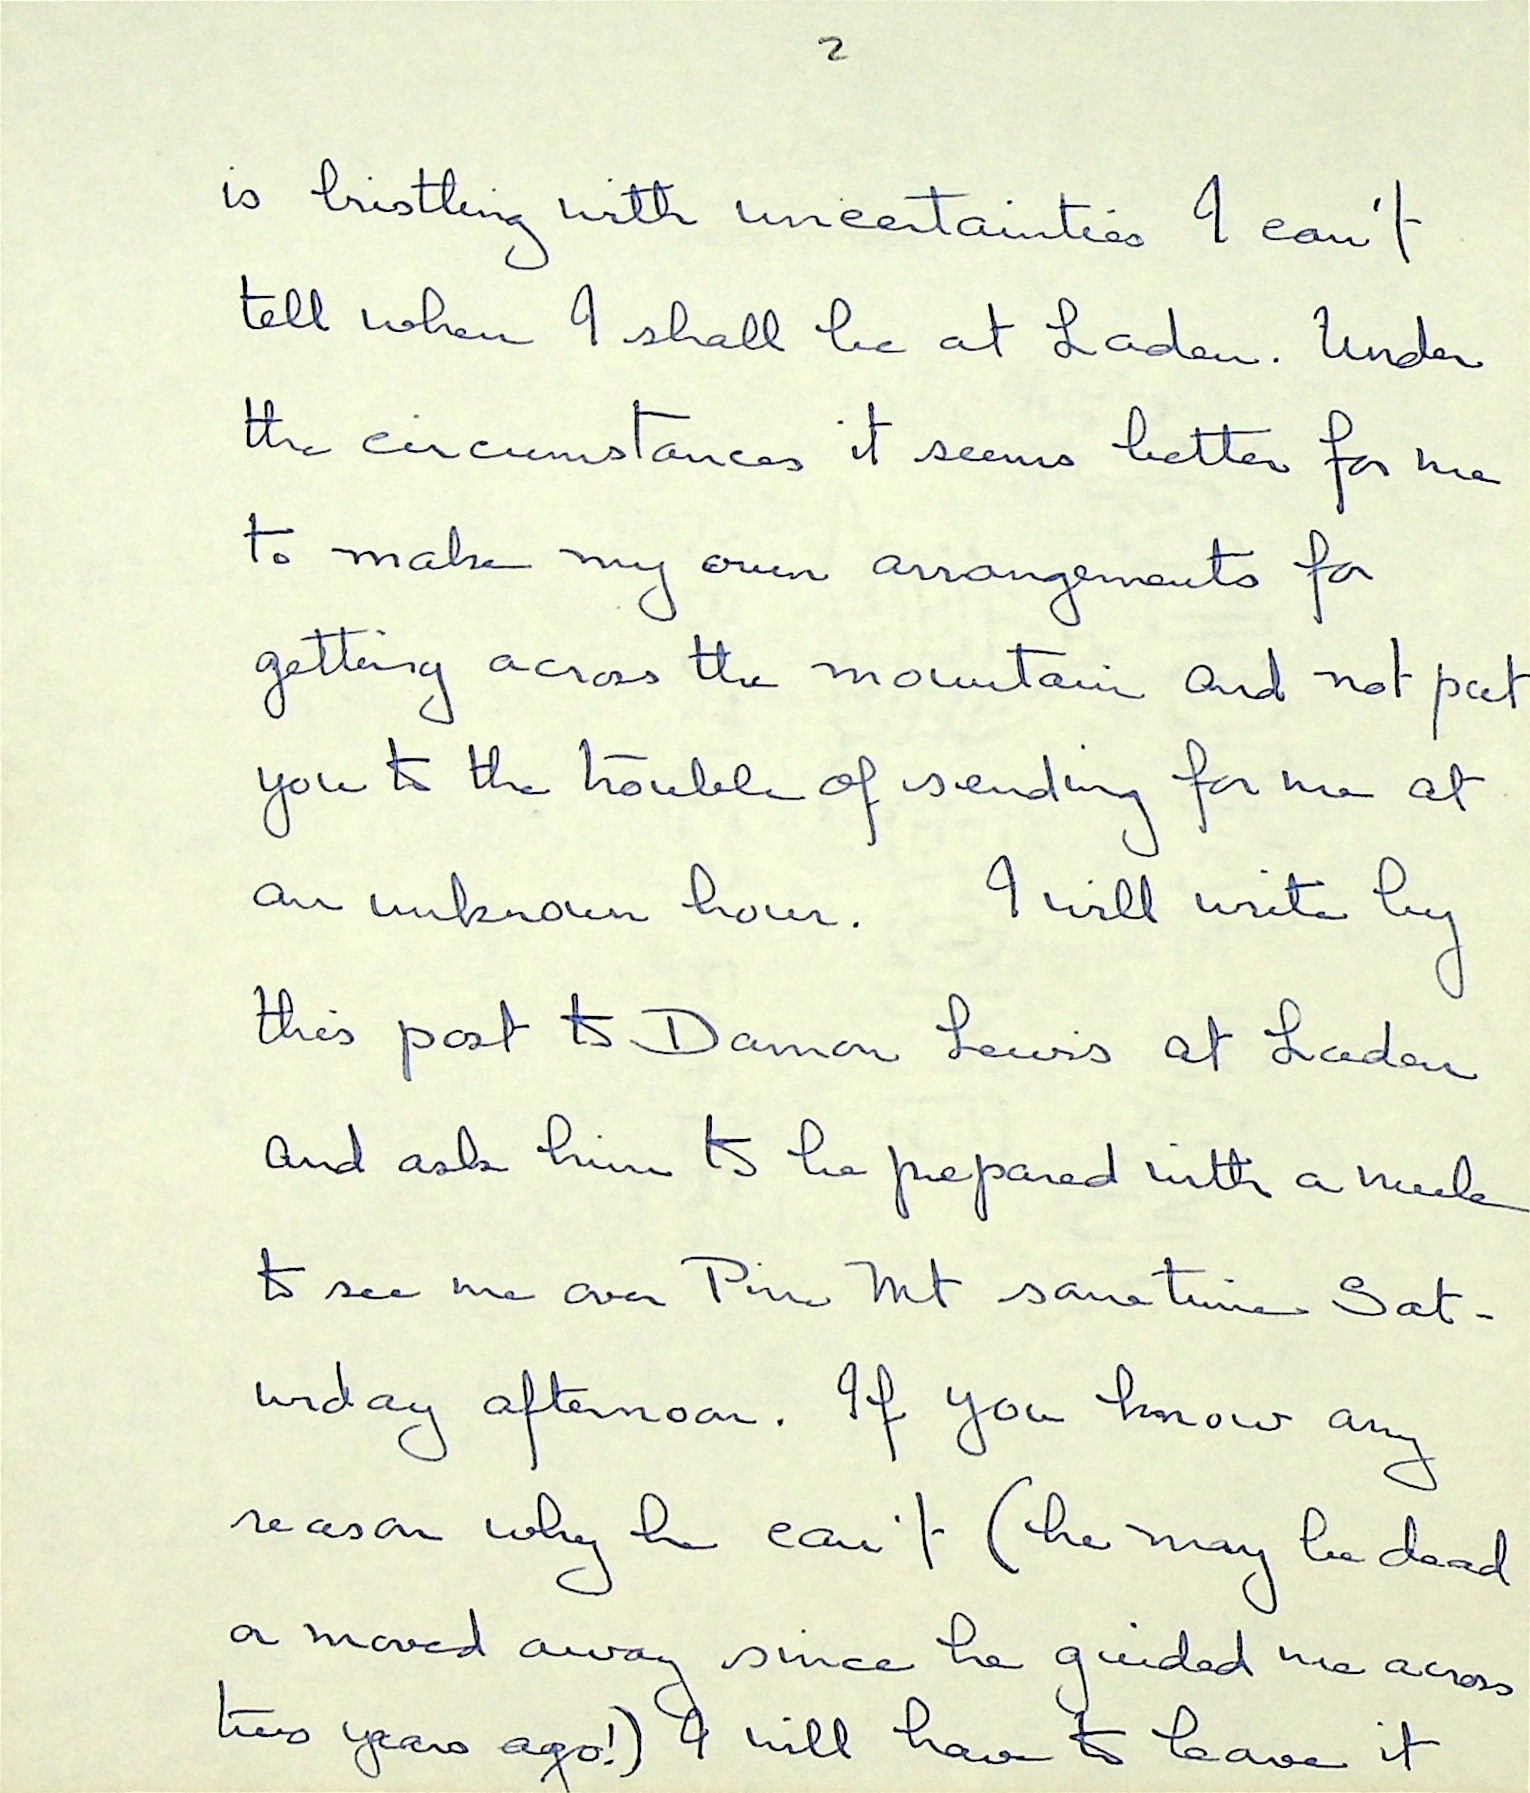 2
is bristling with uncertainties I can't
tell when I shall be at Laden. Under
the circumstances it seems better for me
to make my own arrangements for
getting across the mountain and not put
you to the trouble of sending for me at
an unknown hour. I will write by
this post to Damon Lewis at Laden
and ask him to be prepared with a mule
to see me over Pine Mt sometime Sat-
urday afternoon. If you know any
reason why he can't (he may be dead
or moved away since he guided me across
two years ago!) I will have to leave it